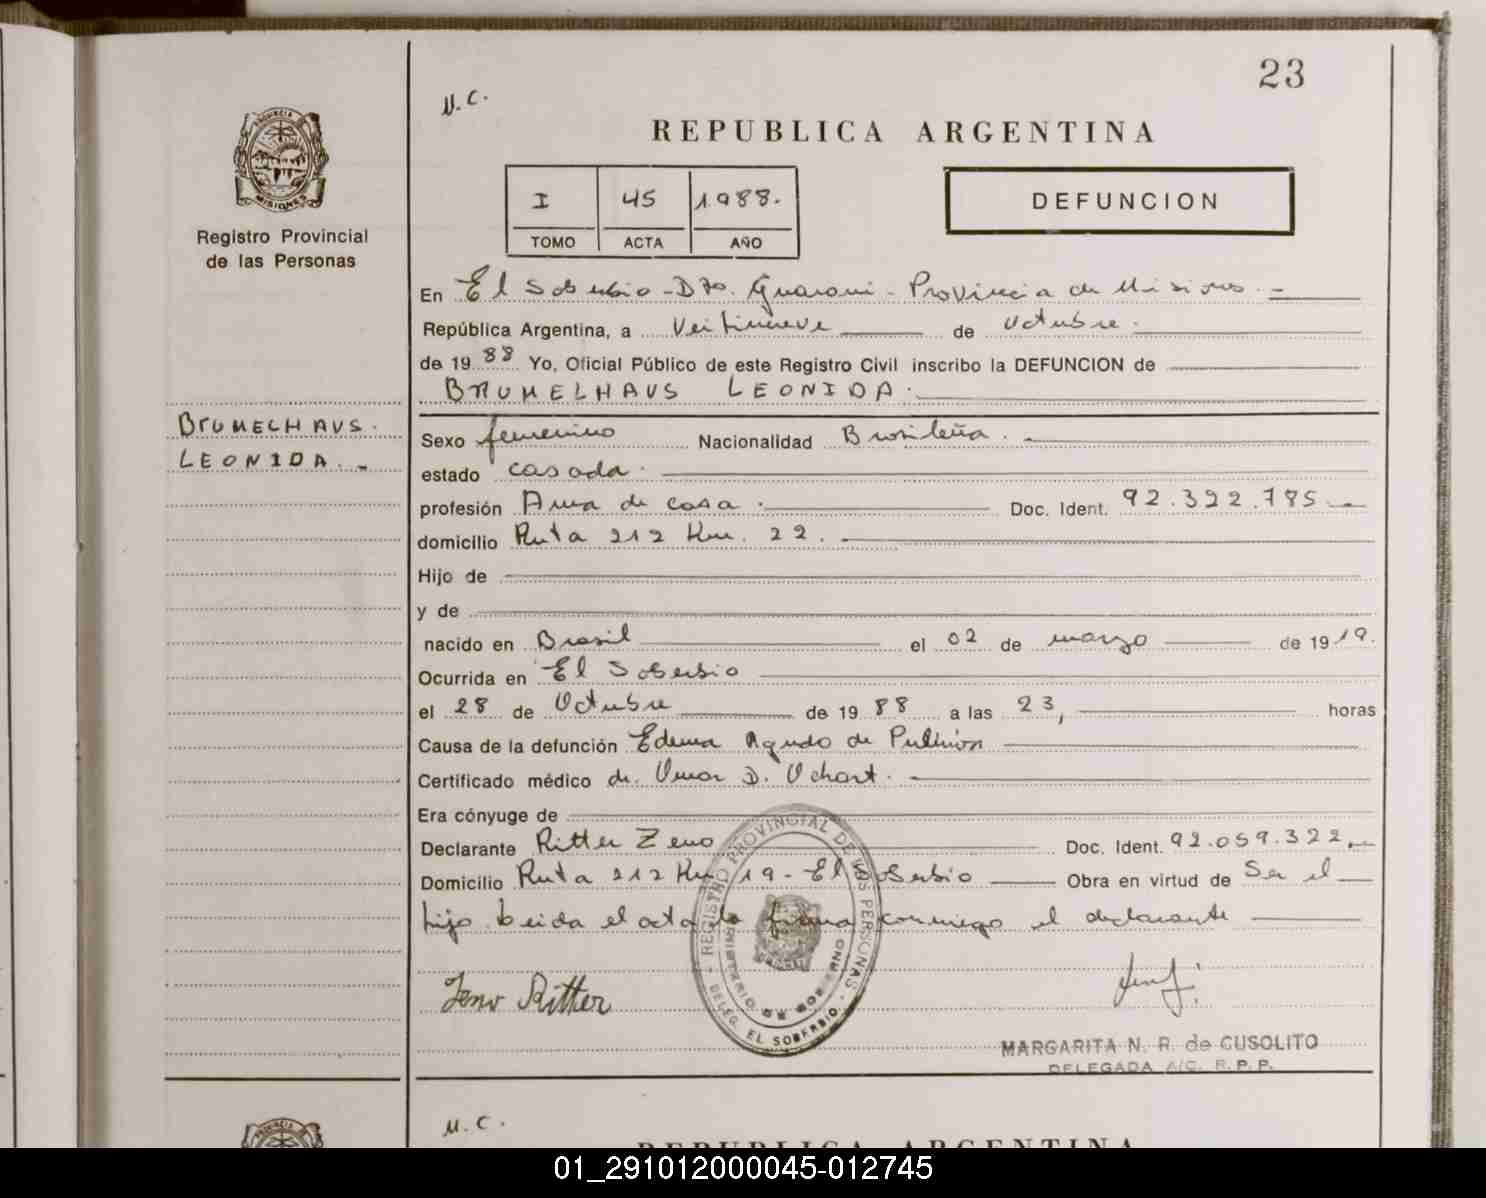 23
V.C.
REPUBLICA ARGENTINA
PROVINCIA DE
MISIONES
Registro Provincial
de las Personas
I 45 1.988.
TOMO ACTA AÑO
DEFUNCION
En El Soberbio - Dto. Guarani - Provincia de Misiones. -
República Argentina, a Veitinueve de Octubre.
de 19 88 Yo, Oficial Público de este Registro Civil inscribo la DEFUNCION de
BRUMELHAUS LEONIDA.
BRUMELHAUS.
LEONIDA. -
Sexo femenino Nacionalidad Brasileña. -
estado casada.
profesión Ama de casa. Doc. Ident. 92.322.785 -
domicilio Ruta 212 Km. 22. -
Hijo de
y de
nacido en Brasil el 02 de marzo de 1919.
Ocurrida en El Soberbio
el 28 de Octubre de 19 88 a las 23, horas
Causa de la defunción Edema Agudo de Pulmón
Certificado médico dr. Omar D. Ochart. -
Era cónyuge de
Declarante Ritter Zeno Doc. Ident. 92.059.322, -
Domicilio Ruta 212 Km 19 - El Soberbio Obra en virtud de Ser el
hijo. Leida el acta la firma conmigo el declarante
Zeno Ritter
REGISTRO PROVINCIAL DE LAS PERSONAS
MINISTERIO DE GOBIERNO
DELEG. EL SOBERBIO
MARGARITA N. R. de CUSOLITO
DELEGADA A/C. R. P. P.
M.C.
REPUBLICA ARGENTINA
01_291012000045-012745